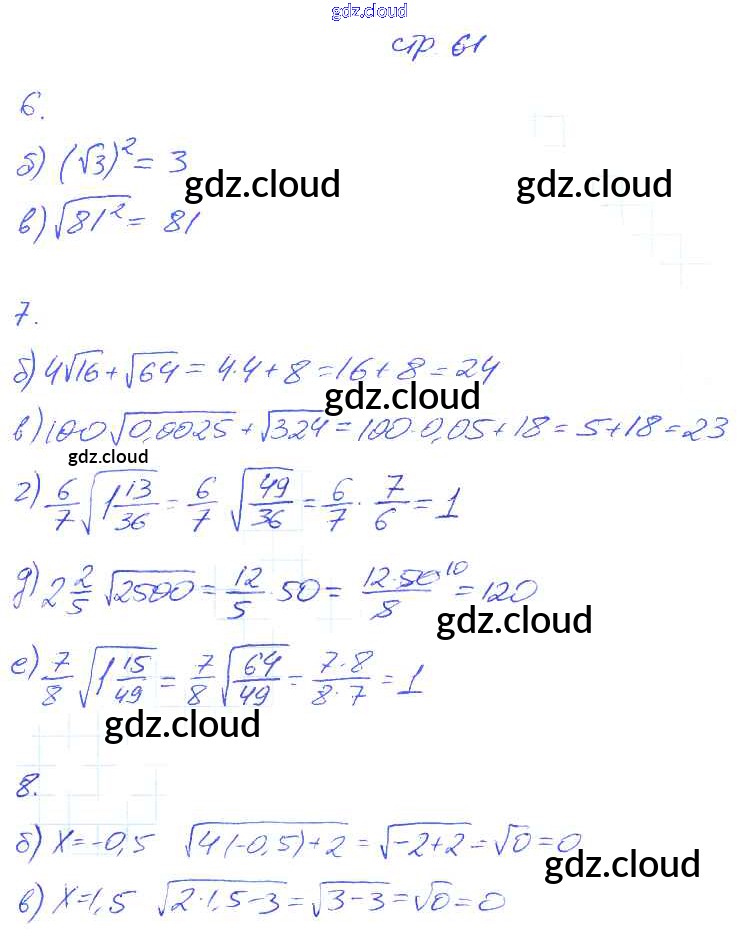 gdz.cloud
стр 61
6.
б) (√3)² = 3
gdz.cloud gdz.cloud
в) √81² = 81
7.
б) 4√16 + √64 = 4·4 + 8 = 16 + 8 = 24
gdz.cloud
в) 100√0,0025 + √324 = 100·0,05 + 18 = 5 + 18 = 23
gdz.cloud
г) 6/7 √(1 13/36) = 6/7 √(49/36) = 6/7 · 7/6 = 1
д) 2 2/5 √2500 = 12/5 · 50 = (12·50 10)/8 = 120
gdz.cloud
е) 7/8 √(1 15/49) = 7/8 √(64/49) = (7·8)/(8·7) = 1
gdz.cloud
8.
б) X = -0,5 √(4(-0,5)+2) = √(-2+2) = √0 = 0
gdz.cloud
в) X = 1,5 √(2·1,5-3) = √(3-3) = √0 = 0